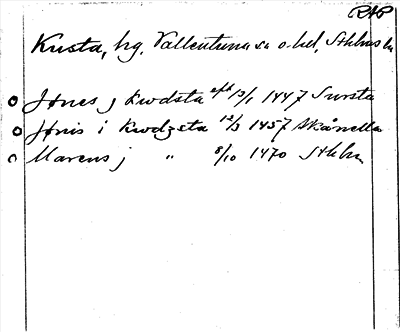 RAP
Kusta, hg, Vallentuna sn o. hd, Sthlms ln
Jønes j kwdsta efd 13/1 1447 Sursta
Jønis i kwdzeta 12/3 1457 Skånella
Marcus j " 8/10 1470 Sthlm